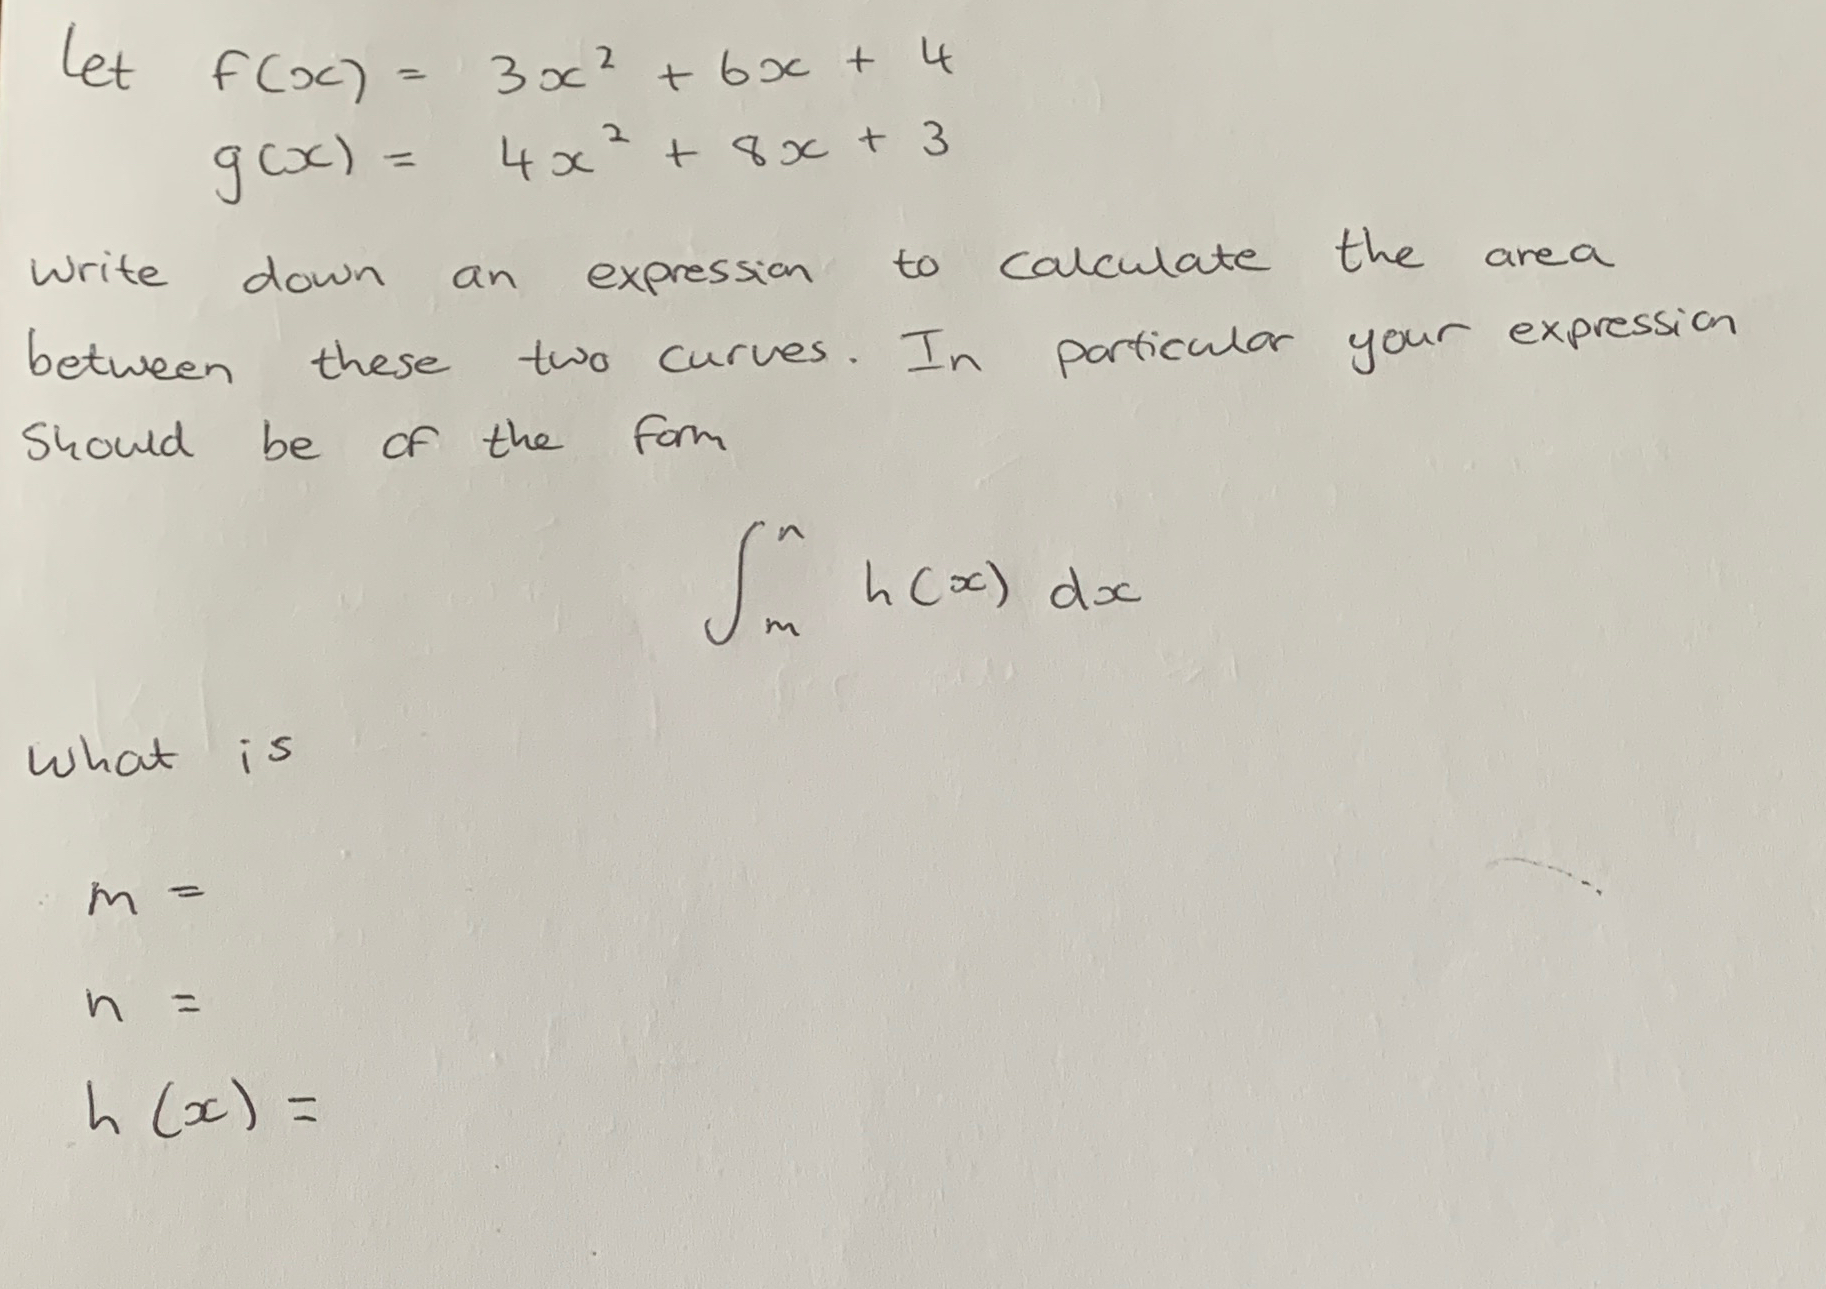 Let f(x) = 3x² + 6x + 4
g(x) = 4x² + 8x + 3
Write down an expression to calculate the area
between these two curves. In particular your expression
should be of the form
∫ₘⁿ h(x) dx
What is
m =
n =
h(x) =